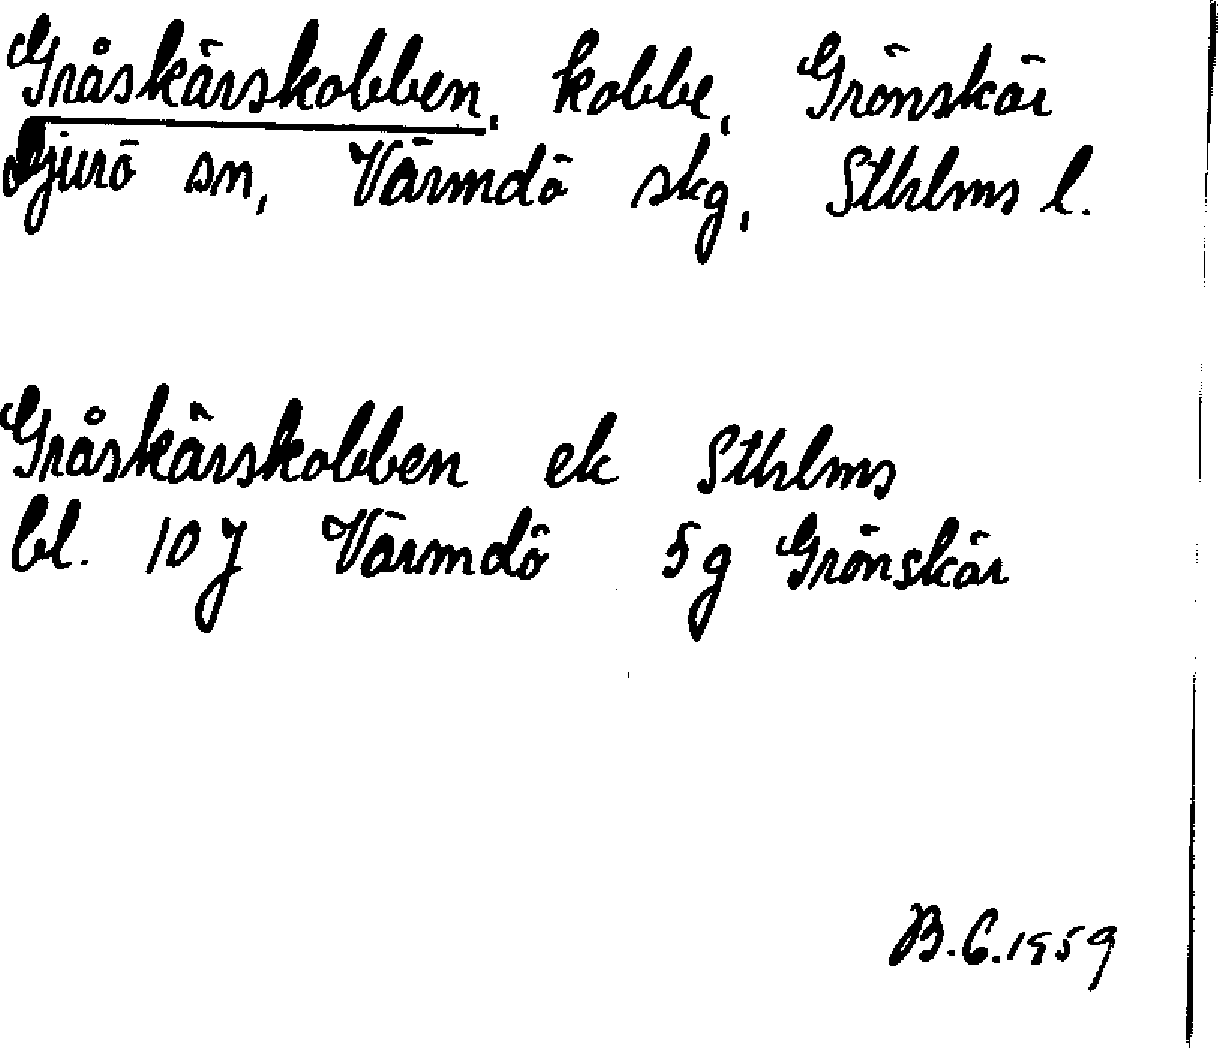 Gråskärskobben, kobbe, Grönskär
Djurö sn, Värmdö skg, Sthlms l.
Gråskärskobben ek Sthlms
bl. 10 J Värmdö 5g Grönskär
B.C. 1959